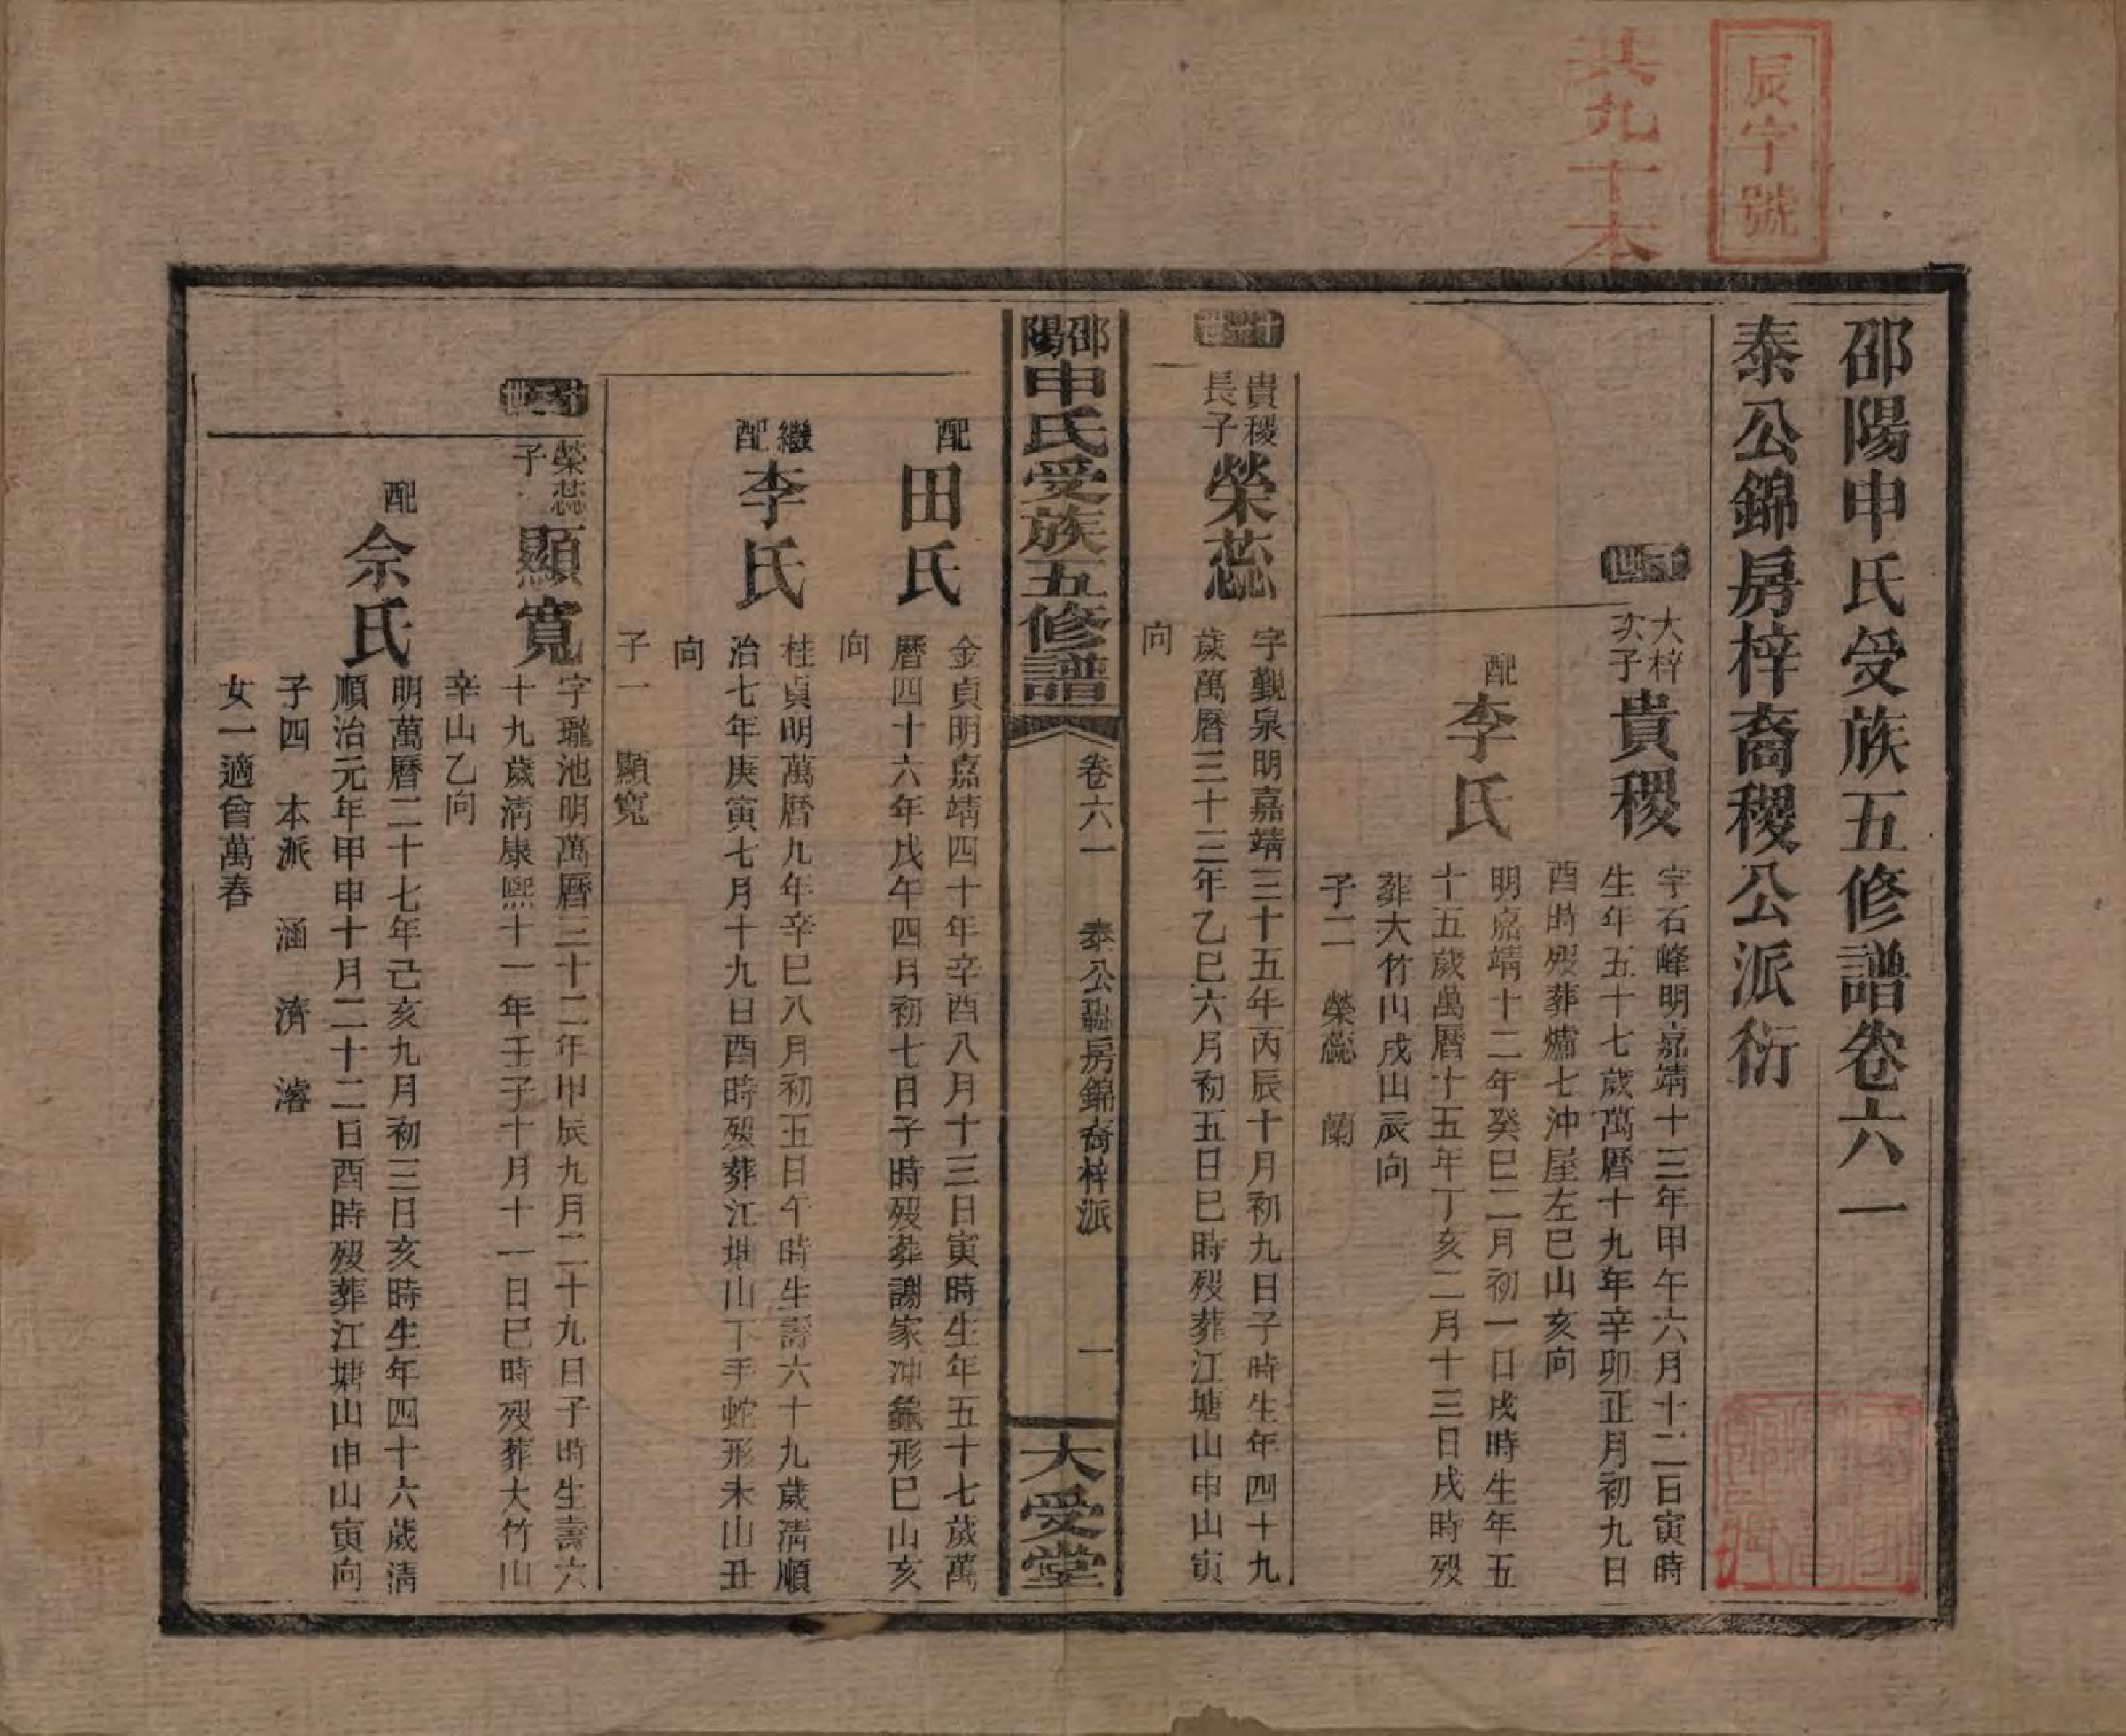 辰字號
共九十本
邵陽申氏受族五修譜卷六一
泰公錦房梓裔稷公派衍
十一世
大梓次子
貴稷
字石峰明嘉靖十三年甲午六月十二日寅時
生年五十七歲萬曆十九年辛卯正月初九日
酉時歿葬爐七沖屋左巳山亥向
配
李氏
明嘉靖十二年癸巳二月初一日戌時生年五
十五歲萬曆十五年丁亥二月十三日戌時歿
葬大竹山戌山辰向
子二 榮蕊 蘭
十二世
貴稷長子
榮蕊
字觀泉明嘉靖三十五年丙辰十月初九日子時生年四十九
歲萬曆三十三年乙巳六月初五日巳時歿葬江塘山申山寅
向
邵陽申氏受族五修譜
卷六一
泰公 房錦裔梓派
一
大受堂
配
田氏
金貞明嘉靖四十年辛酉八月十三日寅時生年五十七歲萬
曆四十六年戊午四月初七日子時歿葬謝家沖龜形巳山亥
向
繼配
李氏
桂貞明萬曆九年辛巳八月初五日午時生壽六十九歲清順
治七年庚寅七月十九日酉時歿葬江塘山下手蛇形未山丑
向
子一 顯寬
十三世
榮蕊子
顯寬
字瓏池明萬曆三十二年甲辰九月二十九日子時生壽六
十九歲清康熙十一年壬子十月十一日巳時歿葬大竹山
辛山乙向
配
佘氏
明萬曆二十七年己亥九月初三日亥時生年四十六歲清
順治元年甲申十月二十二日酉時歿葬江塘山申山寅向
子四 本派 涵 濟 濬
女一適曾萬春